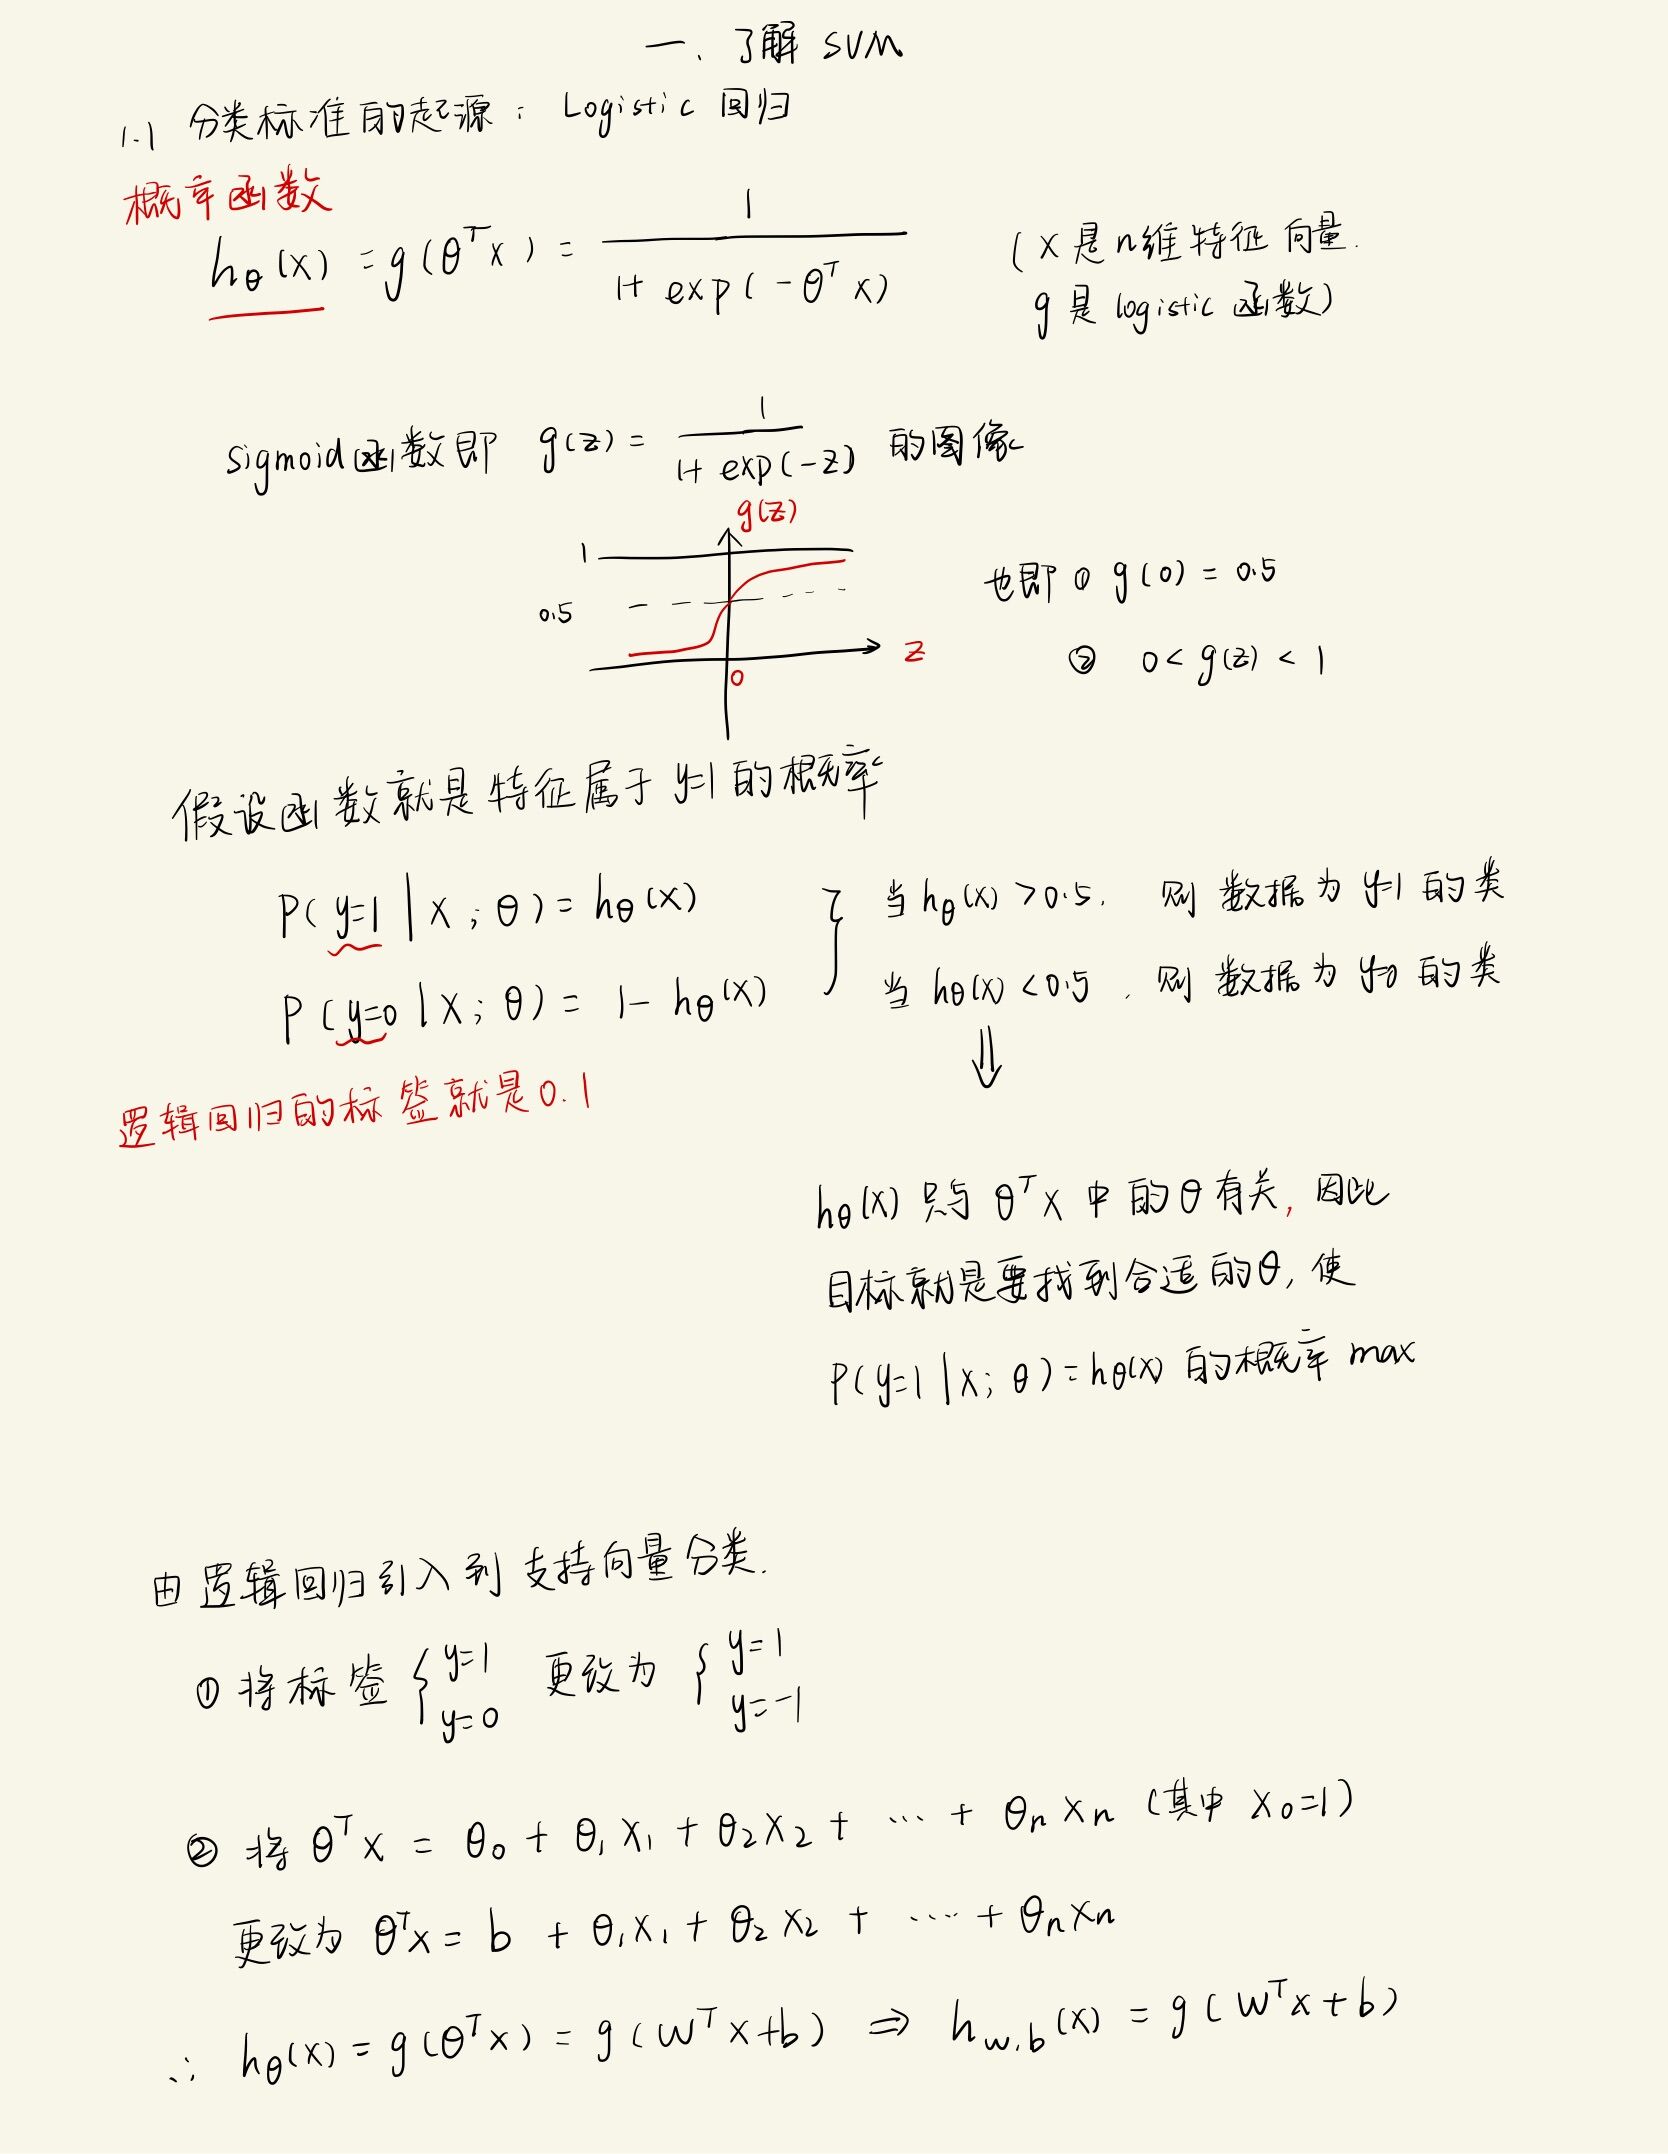 一、了解 SVM
1.1 分类标准的起源：Logistic 回归
概率函数
hθ(x) = g(θᵀx) = 1 / (1+ exp(-θᵀx)) (x是n维特征向量.
g是logistic函数)
sigmoid函数即 g(z) = 1 / (1+ exp(-z)) 的图像
g(z)
1
0.5
z
0
也即 ① g(0) = 0.5
② 0 < g(z) < 1
假设函数就是特征属于 y=1 的概率
P(y=1 | x; θ) = hθ(x) } 当 hθ(x) > 0.5, 则 数据为 y=1 的类
P(y=0 | x; θ) = 1 - hθ(x) 当 hθ(x) < 0.5, 则 数据为 y=0 的类
⇓
逻辑回归的标签就是0.1
hθ(x) 只与 θᵀx 中的θ有关, 因此
目标就是要找到合适的θ, 使
P(y=1 | x; θ) = hθ(x) 的概率 max
由逻辑回归引入到支持向量分类.
① 将标签 { y=1 y=0 更改为 { y=1 y=-1
② 将 θᵀx = θ₀ + θ₁x₁ + θ₂x₂ + ··· + θₙxₙ (其中 x₀=1)
更改为 θᵀx = b + θ₁x₁ + θ₂x₂ + ···· + θₙxₙ
∴ hθ(x) = g(θᵀx) = g(wᵀx+b) ⇒ h w,b (x) = g(wᵀx+b)